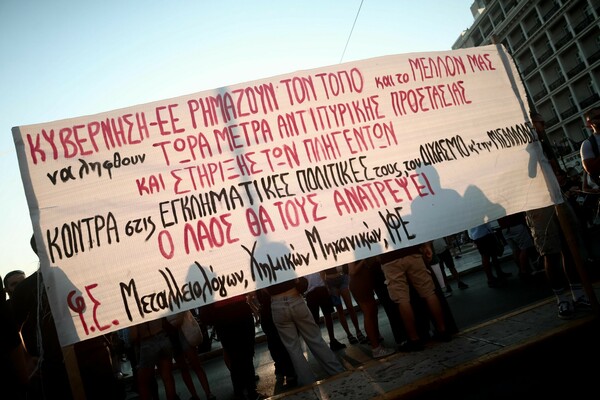 ΚΥΒΕΡΝΗΣΗ-ΕΕ ΡΗΜΑΖΟΥΝ ΤΟΝ ΤΟΠΟ και το ΜΕΛΛΟΝ ΜΑΣ
να ληφθούν ΤΩΡΑ ΜΕΤΡΑ ΑΝΤΙΠΥΡΙΚΗΣ ΠΡΟΣΤΑΣΙΑΣ
ΚΑΙ ΣΤΗΡΙΞΗΣ ΤΩΝ ΠΛΗΓΕΝΤΩΝ
ΚΟΝΤΡΑ στις ΕΓΚΛΗΜΑΤΙΚΕΣ ΠΟΛΙΤΙΚΕΣ τους τον ΔΙΧΑΣΜΟ κ' την
Ο ΛΑΟΣ ΘΑ ΤΟΥΣ ΑΝΑΤΡΕΨΕΙ!
Φ.Σ. Μεταλλειολόγων, Χημικών Μηχανικών, ΗΦΕ